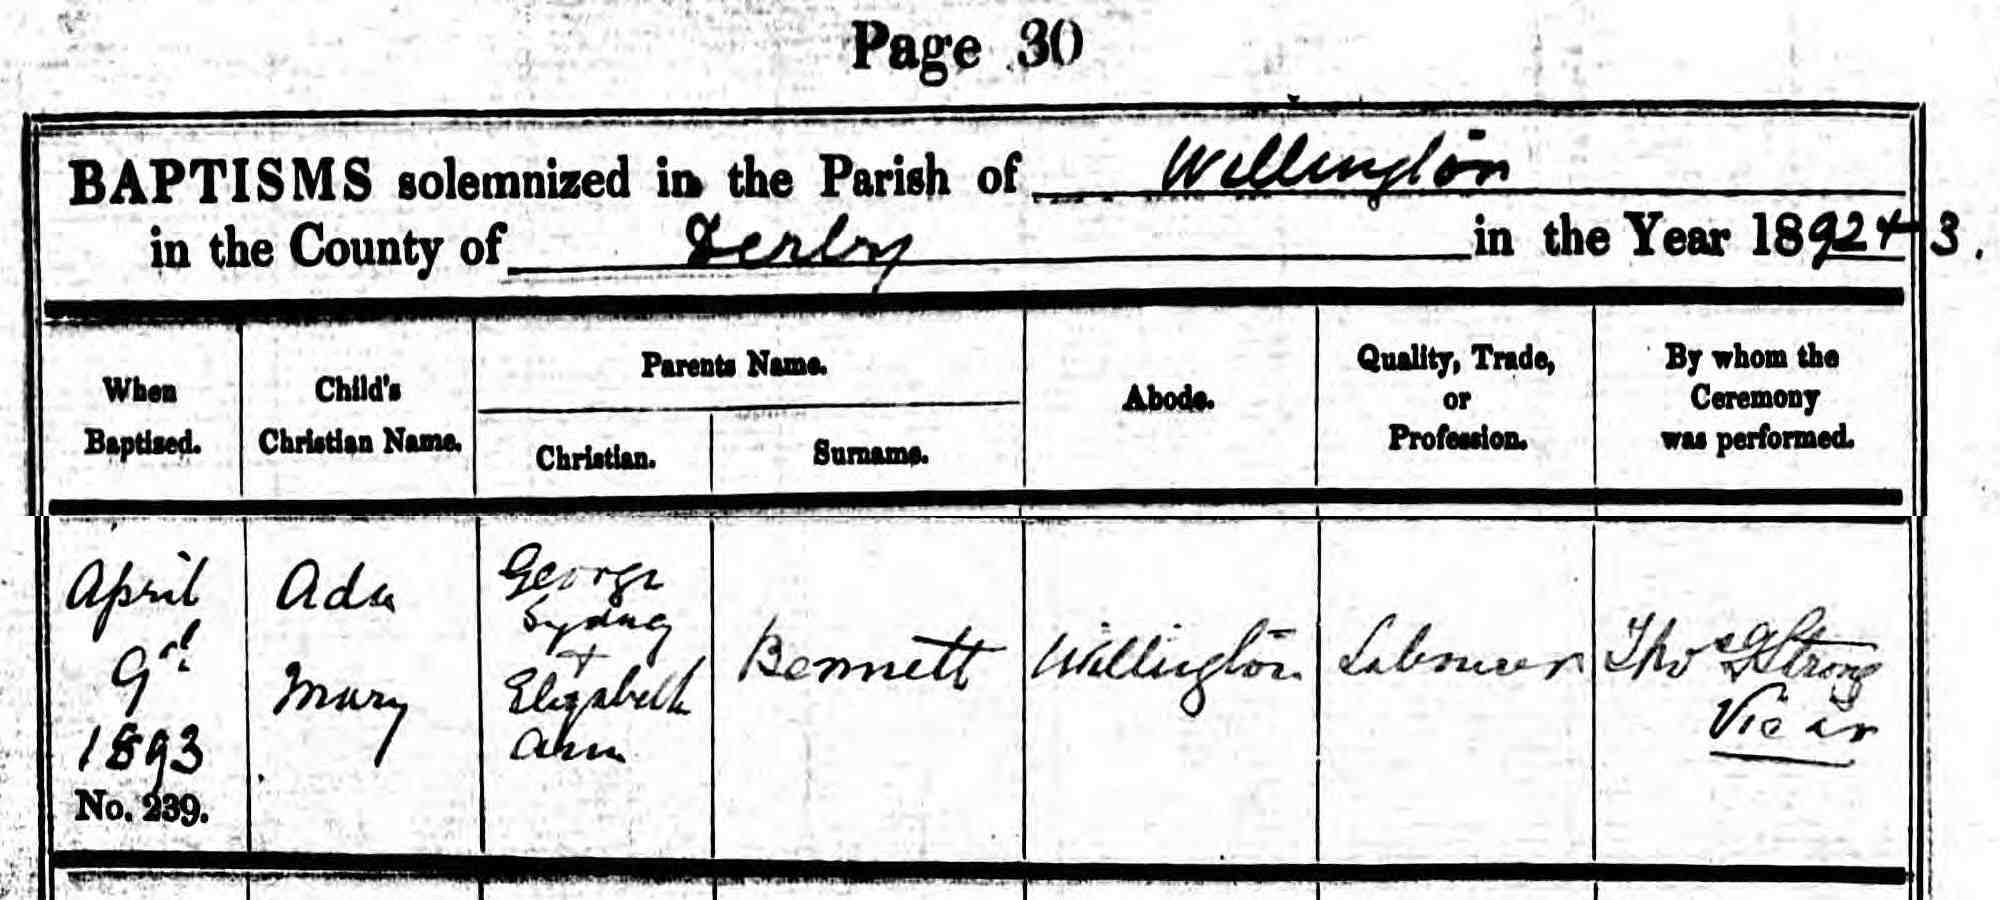 Page 30
BAPTISMS solemnized in the Parish of Willington
in the County of Derby in the Year 1892 + 3.
When
Baptised.
Child's
Christian Name.
Parents Name.
Christian.
Surname.
Abode.
Quality, Trade,
or
Profession.
By whom the
Ceremony
was performed.
April
9th
1893
No. 239.
Ada
Mary
George
Sydney
+
Elizabeth
Ann
Bennett
Willington
Labourer
Thos G Strong
Vicar